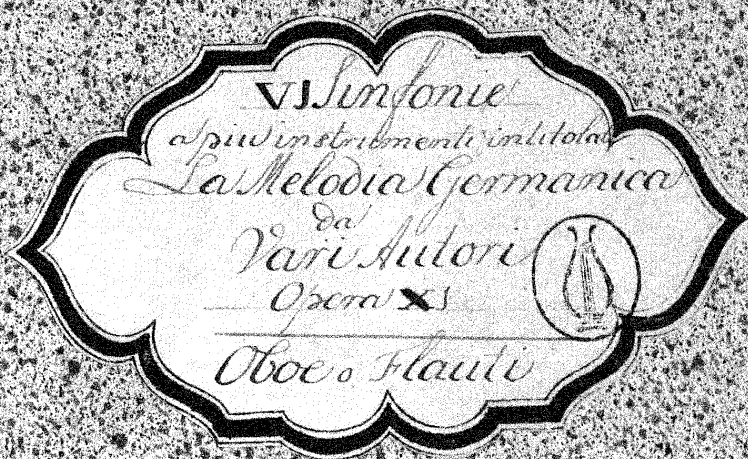 VI Sinfonie
a piu instrumenti intitola
La Melodia Germanica
da
Vari Autori
Opera XI
Oboe o Flauti